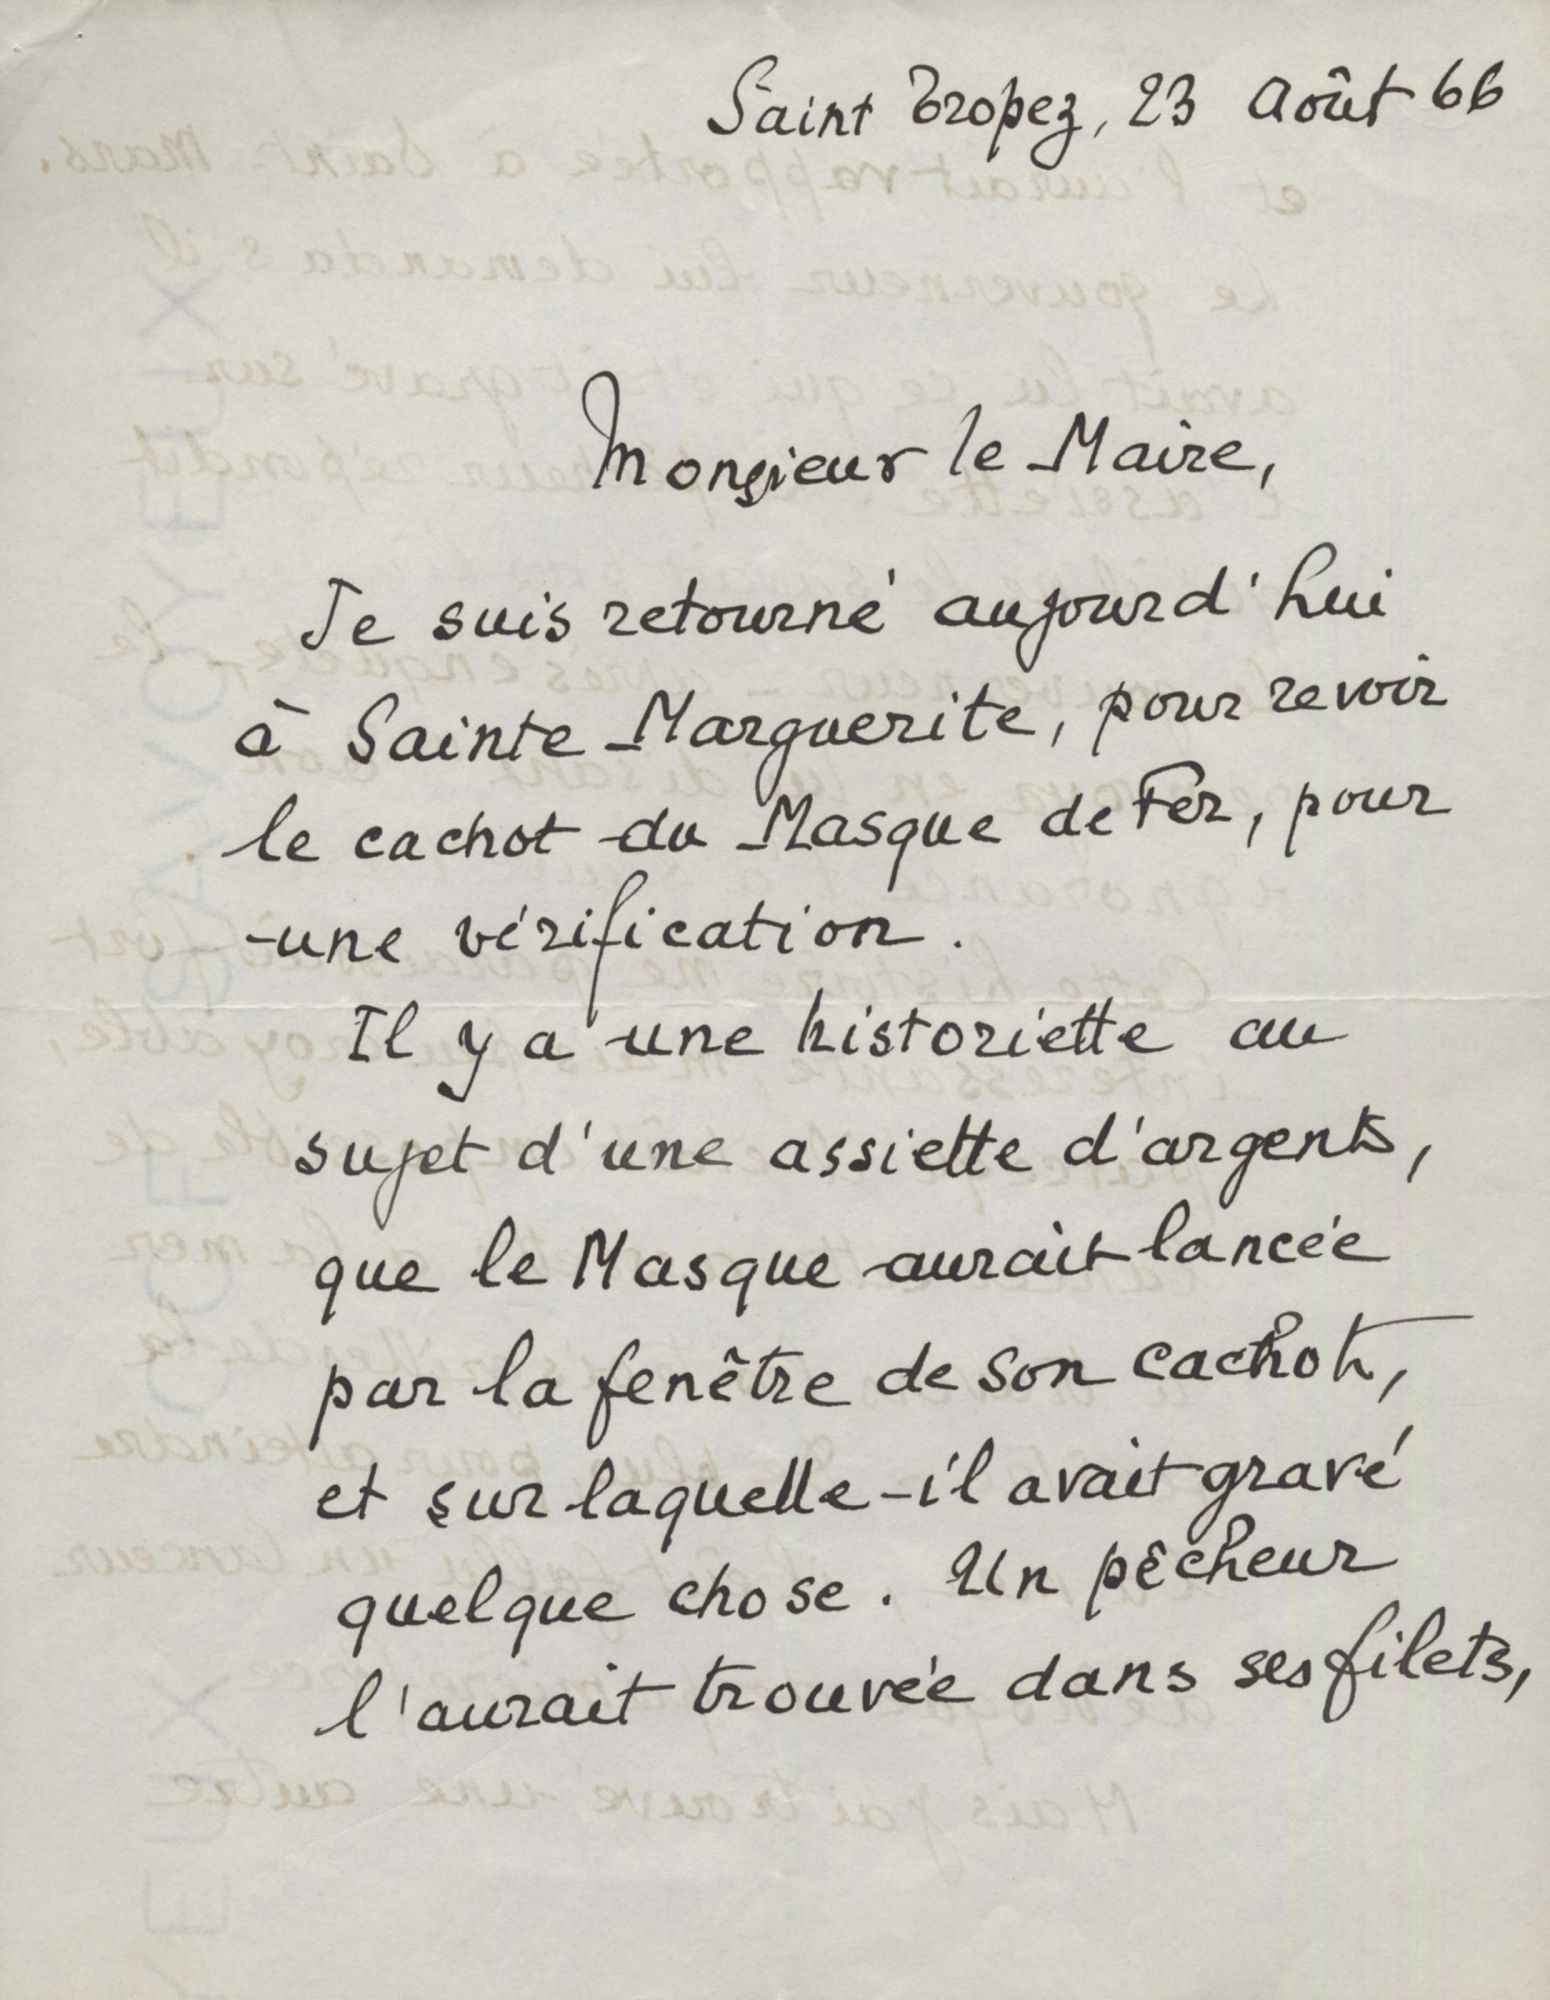 Saint Tropez, 23 Août 66
Monsieur le Maire,
Je suis retourné aujourd'hui
à Sainte Marguerite, pour revoir
le cachot du Masque de Fer, pour
une vérification.
Il y a une historiette au
sujet d'une assiette d'argent,
que le Masque aurait lancée
par la fenêtre de son cachot,
et sur laquelle il avait gravé
quelque chose. Un pêcheur
l'aurait trouvée dans ses filets,